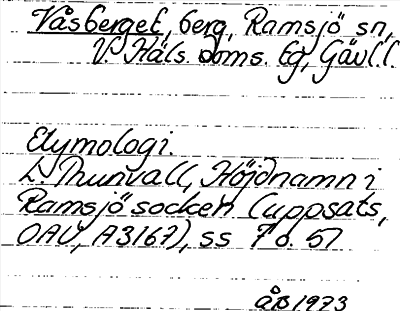 Våsberget, berg, Ramsjö sn,
V. Häls. doms. tg, Gävl.l.
Etymologi.
L. Thunvall, Höjdnamn i
Ramsjö socken (uppsats,
OAU, A3167), ss 7 o. 51
åb 1973